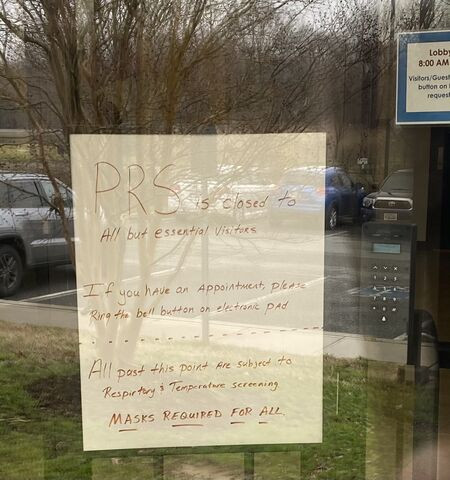 PRS is closed to
All but essential Visitors
If you have an Appointment, please
Ring the bell button on electronic pad
All past this point are subject to
Respirtory & Temperature screening
MASKS REQUIRED FOR ALL.
Lobby
8:00 AM
Visitors/Gues
button on
reques